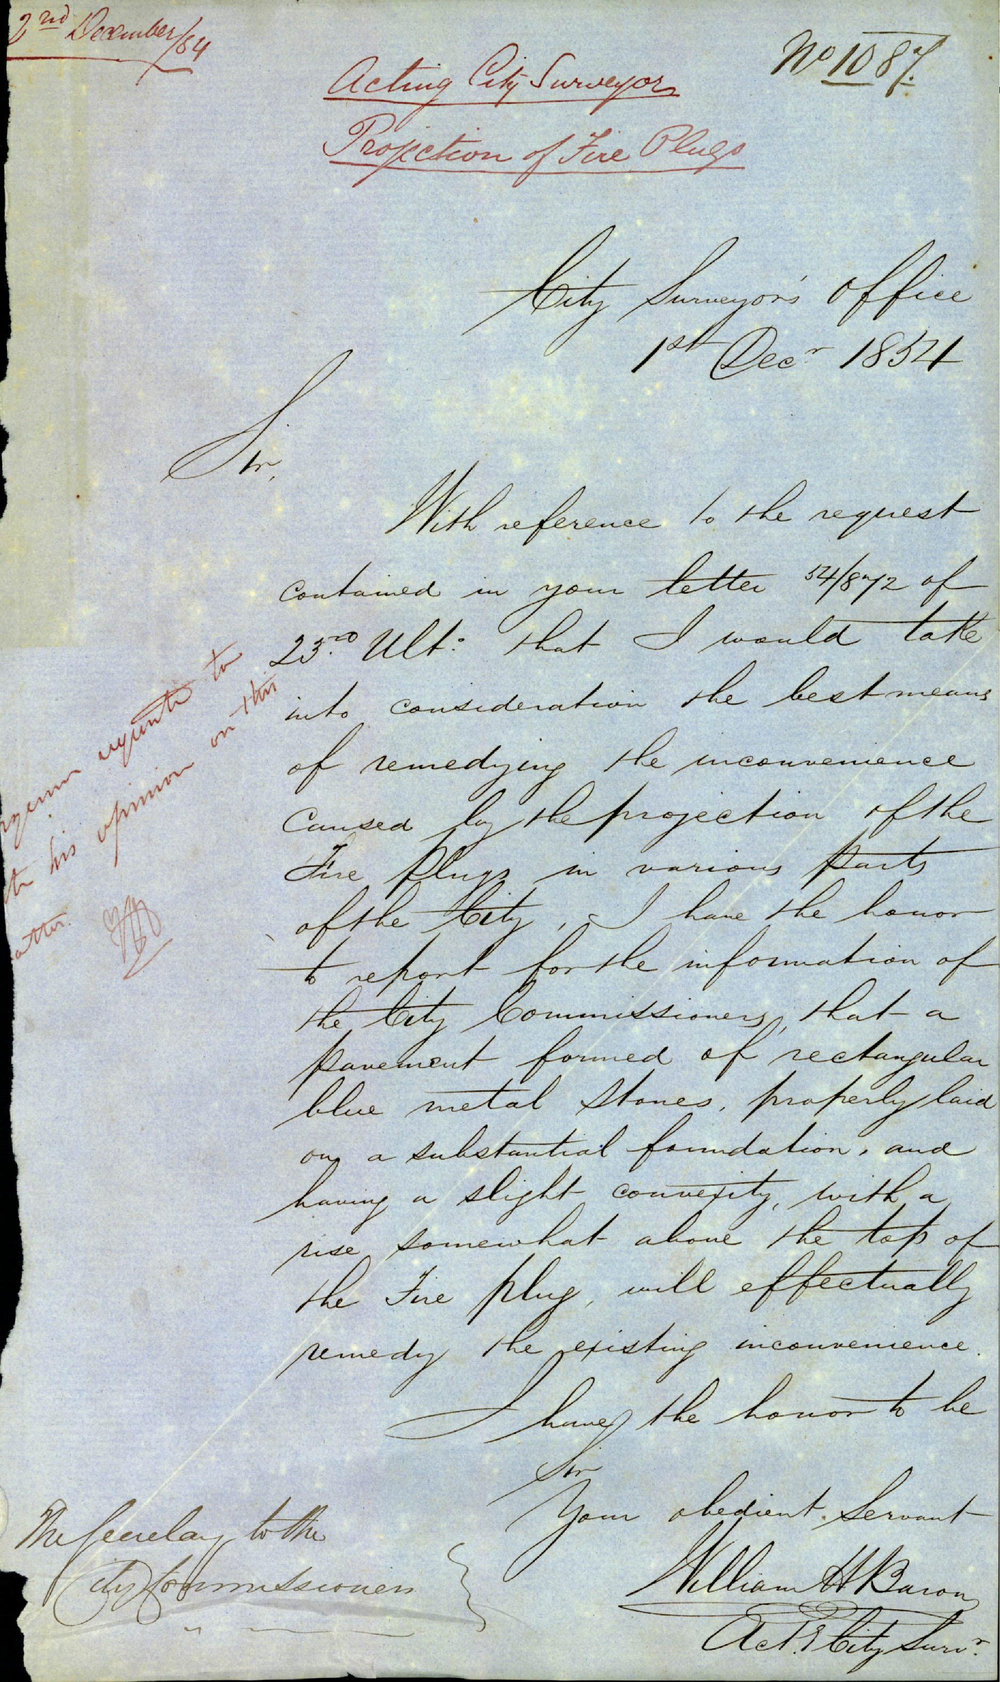 2nd December/54
No 1087.
Acting City Surveyor
Projection of Fire Plugs
City Surveyor's Office
1st Decr 1854
Sir,
With reference to the request
contained in your letter 54/872 of
23rd Ult: that I would take
into consideration the best means
of remedying the inconvenience
caused by the projection of the
Fire Plugs in various parts
of the City, I have the honor
to report for the information of
the City Commissioners, that a
pavement formed of rectangular
blue metal stones, properly laid
on a substantial foundation, and
having a slight convexity, with a
rise somewhat above the top of
the Fire plug, will effectually
remedy the existing inconvenience.
I have the honor to be
Sir
Your obedient Servant
William H Baron
Actg City Survr.
The Secretary to the
City Commissioners
to
his opinion on this
atter.